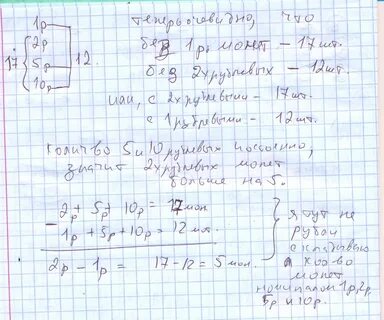 1р
2р
17 5р 12.
10р
Теперь очевидно, что
без 1р. монет - 17 шт.
без 2х рублевых - 12 шт.
или, с 2х рублевыми - 17 шт.
с 1 рублевыми - 12 шт.
Количво 5 и 10 рублевых постоянно,
значит 2х рублевых монет
больше на 5.
2р + 5р + 10р = 17 мон
- 1р + 5р + 10р = 12 м.
2р - 1р = 17 - 12 = 5 мон.
я тут не
рубли
складываю
а кол-во
монет
номиналом 1р, 2р,
5р и 10р.